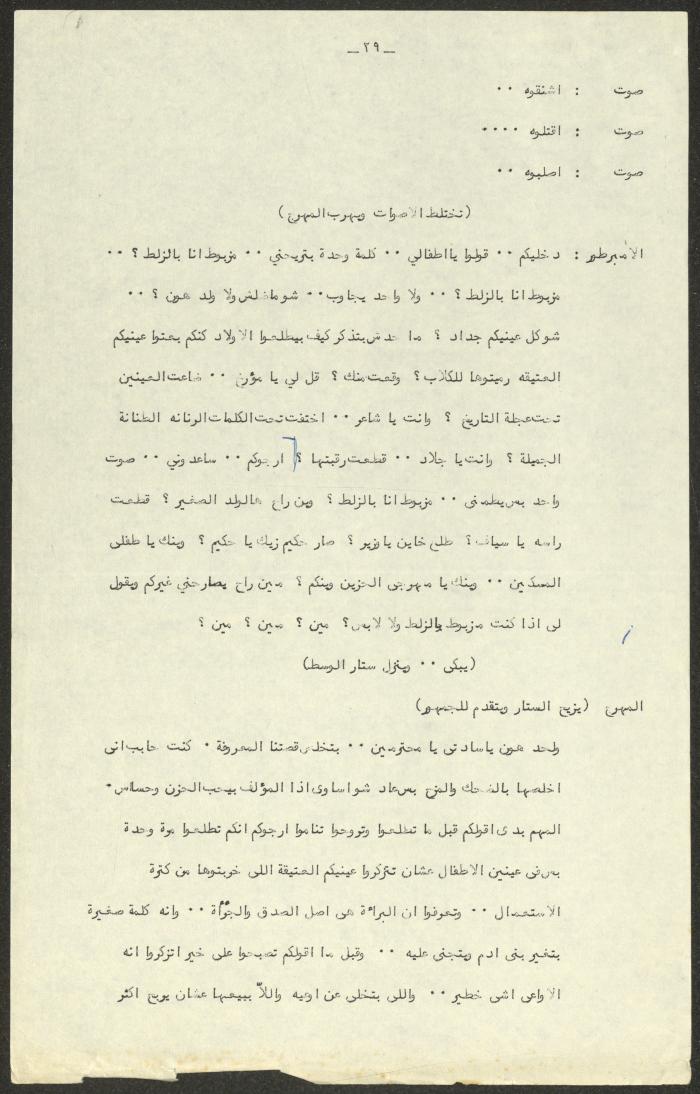 _ ٢٩ _
صوت : اشنقوه ٠٠
صوت : اقتلوه ٠٠٠٠
صوت : اصلبوه ٠٠
(تختلط الاصوات ويهرب المهرج)
الأمبرطور : دخليكم ٠٠ قولوا يا اطفالي ٠٠ كلمة وحدة بتريحني ٠٠ مزبوط انا بالزلط ؟ ٠٠
مزبوط انا بالزلط ؟ ٠٠ ولا واحد يجاوب ٠٠ شو ماضلش ولا ولد هون ؟ ٠٠
شو كل عينيكم جداد ؟ ما حدش بتذكر كيف بيطلعوا الاولاد كنكم بعتوا عينيكم
العتيقه رميتوها للكلاب ؟ وقعت منك ؟ قل لي يا مؤرخ ٠٠ ضاعت العينين
تحت عجلة التاريخ ؟ وانت يا شاعر ٠٠ اختفت تحت الكلمات الرنانه الطنانة
الجميلة ؟ وانت يا جلاد ٠٠ قطعت رقبتها ؟ ارجوكم ٠٠ ساعدوني ٠٠ صوت
واحد بس يطمنى ٠٠ مزبوط انا بالزلط ؟ وين راح هالولد الصغير ؟ قطعت
راسه يا سياف ؟ طلع خاين يا وزير ؟ صار حكيم زيك يا حكيم ؟ وينك يا طفلى
المسكين ٠٠ وينك يا مهرجى الحزين وينكم ؟ مين راح يصارحني غيركم ويقول
لى اذا كنت مزبوط بالزلط ولا لابس ؟ مين ؟ مين ؟ مين ؟
(يبكى ٠٠ وينزل ستار الوسط)
المهرج (يزيح الستار ويتقدم للجمهور)
ولحد هون ياسادتى يا محترمين ٠٠ بتخلص قصتنا المعروفة ٠ كنت حابب انى
اخلصها بالضحك والمزح بس عاد شو اساوى اذا المؤلف بيحب الحزن وحساس ٠
المهم بدى اقولكم قبل ما تطلعوا وتروحوا تناموا ارجوكم انكم تطلعوا مرة وحدة
بس فى عينين الاطفال عشان تتزكروا عينيكم العتيقة اللى خربتوها من كترة
الاستعمال ٠٠ وتعرفوا ان البرائة هى اصل الصدق والجرأة ٠٠ وانه كلمة صغيرة
بتغير بنى ادم وبتجنى عليه ٠٠ وقبل ما اقولكم تصبحوا على خير اتزكروا انه
الاواعى اشى خطير ٠٠ واللى بتخلى عن اوعيه واللاّ ببيعها عشان يربح اكثر